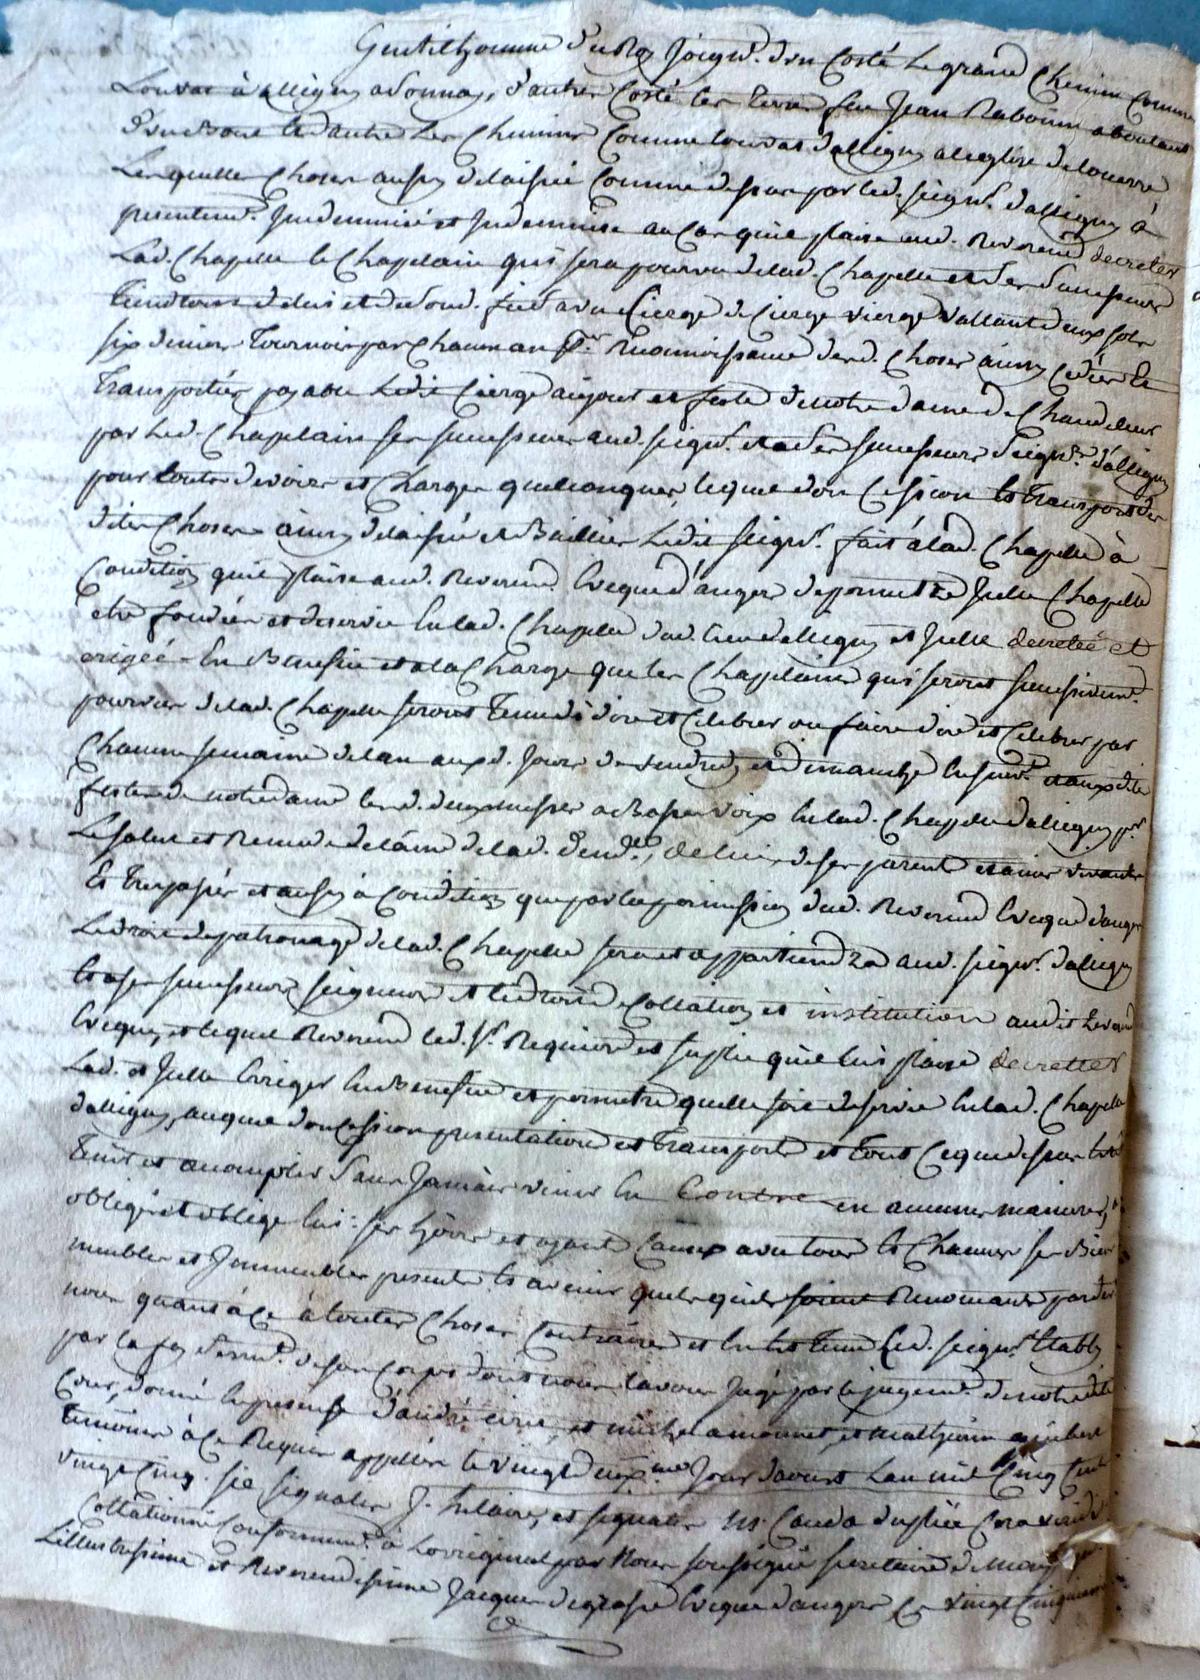 Gentilhomme du Roy Joign.t d'un Costé Le grand Chemin Comme
Lon vat d'alligny adonnay, d'autre Costé les terres feu Jean Rabouin aboutant
D'un Bout Les autres Les Chemins Comme lon vat d'alligny aleglise delouerre
Lesquelles Choses ainsy delaissée Comme dessus par led. seign.r d'alligny à
presentem.t Indemnisé et Indemnise au Cas quil plaise aud. Reverend decreter
Lad. Chapelle le Chapelain qui sera pourvu de lad. Chapelle et ses successeurs
tiendront deluis et de soud. fied a un Cierge de Cierge vierge Vallant deux sols
six deniers Tournois par Chacun an p.r Reconnoissance desd. Choses ainsy Cedées Et
Transportées payable Ledit Cierge aujour et feste de notre dame de Chandeleur
par Led. Chapelain ses successeurs aud. seign.r et a ses successeurs Seign.rs d'alligny
pour toutes devoirs et Charges quelconques lequel don Cession et transport des
dites Choses ainsy delaissée et Baillées Ledit seign.r fait à lad. Chapelle à
Condition quil plaise aud. Reverend Eveque d'angers de permettre Icelle Chapelle
etre fondée et deservie En lad. Chapelle dud. lieu d'alligny et Icelle decretée et
erigée En Benefice et a la Charge que les Chapelains qui seront successivem.t
pourvus de lad. Chapelle seront Tenus dire et Celebrer ou faire dire et Celebrer par
Chacune semaine de lan auxd. Jours de vendredy et dimanche Ensuiv.t et auxdites
festes de notre dame lesd. deux messes a Basse voix En lad. Chapelle d'alligny p.r
Le salut et Remede de l'ame de lad. deud.te, de luis, de ses parents et amis vivants
Et Trepassés et aussy à Condition que par la permission dud. Reverend Eveque d'angers
Le droit de patronage de lad. Chapelle sera et appartiendra aud. seign.r d'alligny
Et a ses successeurs seigneurs et le droit de Collation et institution audit Reverend
Eveque, et lequel Reverend led. S.r Requiere et suplie quil luis plaise decretter
Lad. et Icelle Erriger En Benefice et permetre quelle soit deservie En lad. Chapelle
d'alligny, auquel don Cession presentation et Transport et tout Ce que dessus
Tenir et accomplir sans Jamais venir En Contre en aucunes manieres,
obligé et oblige luis: ses hoirs et ayant Causes avec tous Et Chacuns ses Biens
meubles et Immeubles presents Et avenir quels quils soient Renonçant par devant
nous quant à Ce à toutes Choses Contraires et En Est Tenu Led. seign.r Etably
par la foy serm.t de son Corps dont nous lavons Jugé par le jugem.t de notre dite
Cour, donné En presence d'andré et michel et mathurin
temoins à Ce Requis appellés le Vingt deux.me Jour d'aoust Lan mil Cinq Cent
Vingt Cinq. sic signatus J. hilaire, et signatus
Collationné Conformem.t à Lorriginal par Nous soussigné secretaire de
Lillustrissime et Reverendissime Jacques degrasse Eveque d'angers Ce Vingt Cinquieme